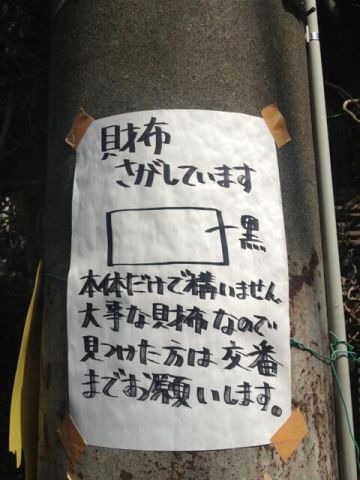 財布
さがしています
黒
本体だけで構いません
大事な財布なので
見つけた方は交番
までお願いします。